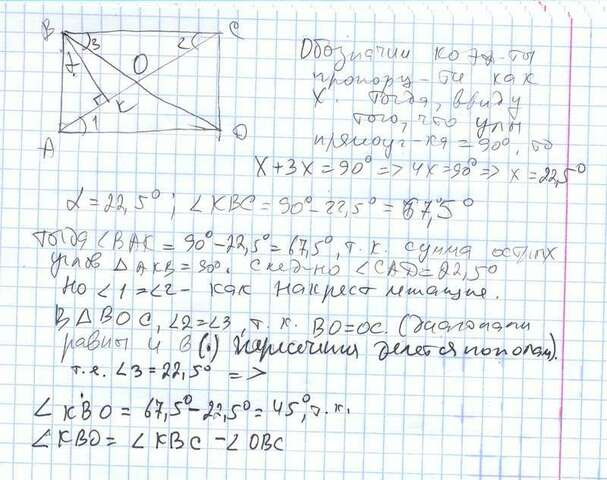 B 3 2 C
α O
K
A 1 D
Обозначим коэф-ты
пропорц-ти как
x. Тогда, ввиду
того, что углы
прямоуг-ка = 90°, то
x + 3x = 90° => 4x = 90° => x = 22,5°
α = 22,5°; ∠KBC = 90° - 22,5° = 67,5°
Тогда ∠BAK = 90° - 22,5° = 67,5°, т.к. сумма острых
углов ΔAKB = 90°. След-но ∠CAD = 22,5°
Но ∠1 = ∠2 - как накрест лежащие.
В ΔBOC, ∠2 = ∠3, т.к. BO = OC. (диагонали
равны и в (·) пересечения делятся пополам).
т.е. ∠3 = 22,5° =>
∠KBO = 67,5° - 22,5° = 45°, т.к.
∠KBO = ∠KBC - ∠OBC